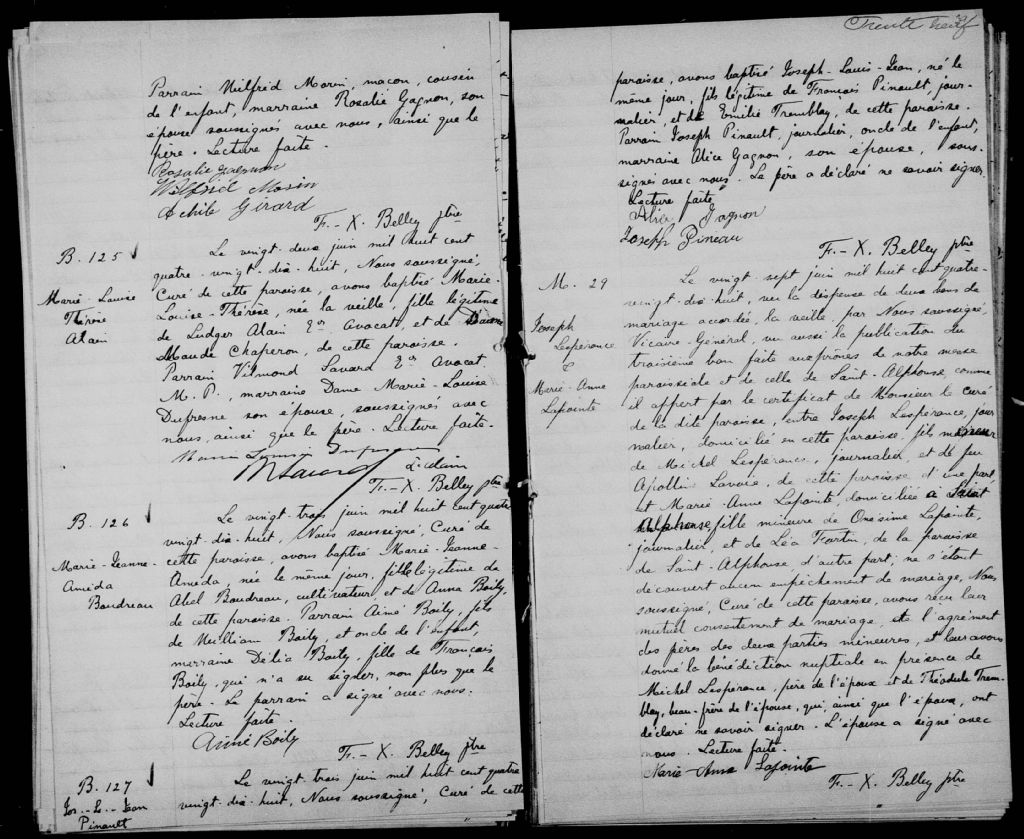 Parrain Wilfrid Morin, maçon, cousin
de l'enfant, marraine Rosalie Gagnon, son
épouse soussignés avec nous, ainsi que le
père. Lecture faite.
Rosalie Gagnon
Wilfrid Morin
Achile Girard
F.-X. Belley ptre
B. 125
Marie-Louise
Thérèse
Alain
Le vingt-deux juin mil huit cent
quatre-vingt-dix-huit, Nous soussigné,
Curé de cette paroisse, avons baptisé Marie-
Louise-Thérèse, née la veille, fille légitime
de Ludger Alain Ecr Avocat, et de
Maude Chaperon, de cette paroisse.
Parrain Vilmond Savard Ecr Avocat
M. P., marraine Dame Marie-Louise
Dufresne son épouse, soussignés avec
nous, ainsi que le père. Lecture faite.
L. Alain
F.-X. Belley ptre
B. 126
Marie-Jeanne-
Améda
Boudreau
Le vingt-trois juin mil huit cent quatre
vingt-dix-huit, Nous soussigné, Curé de
cette paroisse, avons baptisé Marie-Jeanne-
Améda, née le même jour, fille légitime de
Abel Boudreau, cultivateur, et de Anna Boily,
de cette paroisse. Parrain Aimé Boily, fils
de William Boily, et oncle de l'enfant,
marraine Délia Boily, fille de François
Boily, qui n'a su signer, non plus que le
père. Le parrain a signé avec nous.
Lecture faite.
Aimé Boily
F.-X. Belley ptre
B. 127
Jos.-L.-Jean
Pinault
Le vingt trois juin mil huit cent quatre
vingt-dix-huit, Nous soussigné, Curé de cette
Trente neuf
paroisse, avons baptisé Joseph-Louis-Jean, né le
même jour, fils légitime de François Pinault, jour-
nalier, et de Emilie Tremblay, de cette paroisse.
Parrain Joseph Pinault, journalier, oncle de l'enfant,
marraine Alice Gagnon, son épouse, sous-
signés avec nous. Le père a déclaré ne savoir signer.
Lecture faite
Alice Gagnon
Joseph Pineau
F.-X. Belley ptre
M. 29
Joseph
Lespérance
&
Marie-Anne
Lapointe
Le vingt sept juin mil huit cent quatre-
vingt-dix-huit, vu la dispense de deux bans de
mariage accordée, la veille, par Nous soussigné,
Vicaire-Général, vu aussi la publication du
troisième ban faite aux prônes de notre messe
paroissiale et de celle de Saint-Alphonse, comme
il appert par le certificat de Monsieur le Curé
de la dite paroisse, entre Joseph Lespérance, jour
nalier, domicilié en cette paroisse, fils mineur
de Michel Lespérance, journalier, et de feu
Apolline Lavoie, de cette paroisse d'une part,
et Marie-Anne Lapointe, domiciliée à Saint
Alphonse, fille mineure de Onésime Lapointe,
journalier, et de Léa Fortin, de la paroisse
de Saint-Alphonse, d'autre part; ne s'étant
découvert aucun empêchement de mariage, Nous
soussigné, Curé de cette paroisse, avons reçu leur
mutuel consentement de mariage, de l'agrément
des pères des deux parties mineures, et leur avons
donné la bénédiction nuptiale en présence de
Michel Lespérance, père de l'époux et de Théodule Trem-
blay, beau-frère de l'épouse, qui, ainsi que l'époux, ont
déclaré ne savoir signer. L'épouse a signé avec
nous. Lecture faite.
Marie-Anne Lapointe
F.-X. Belley ptre